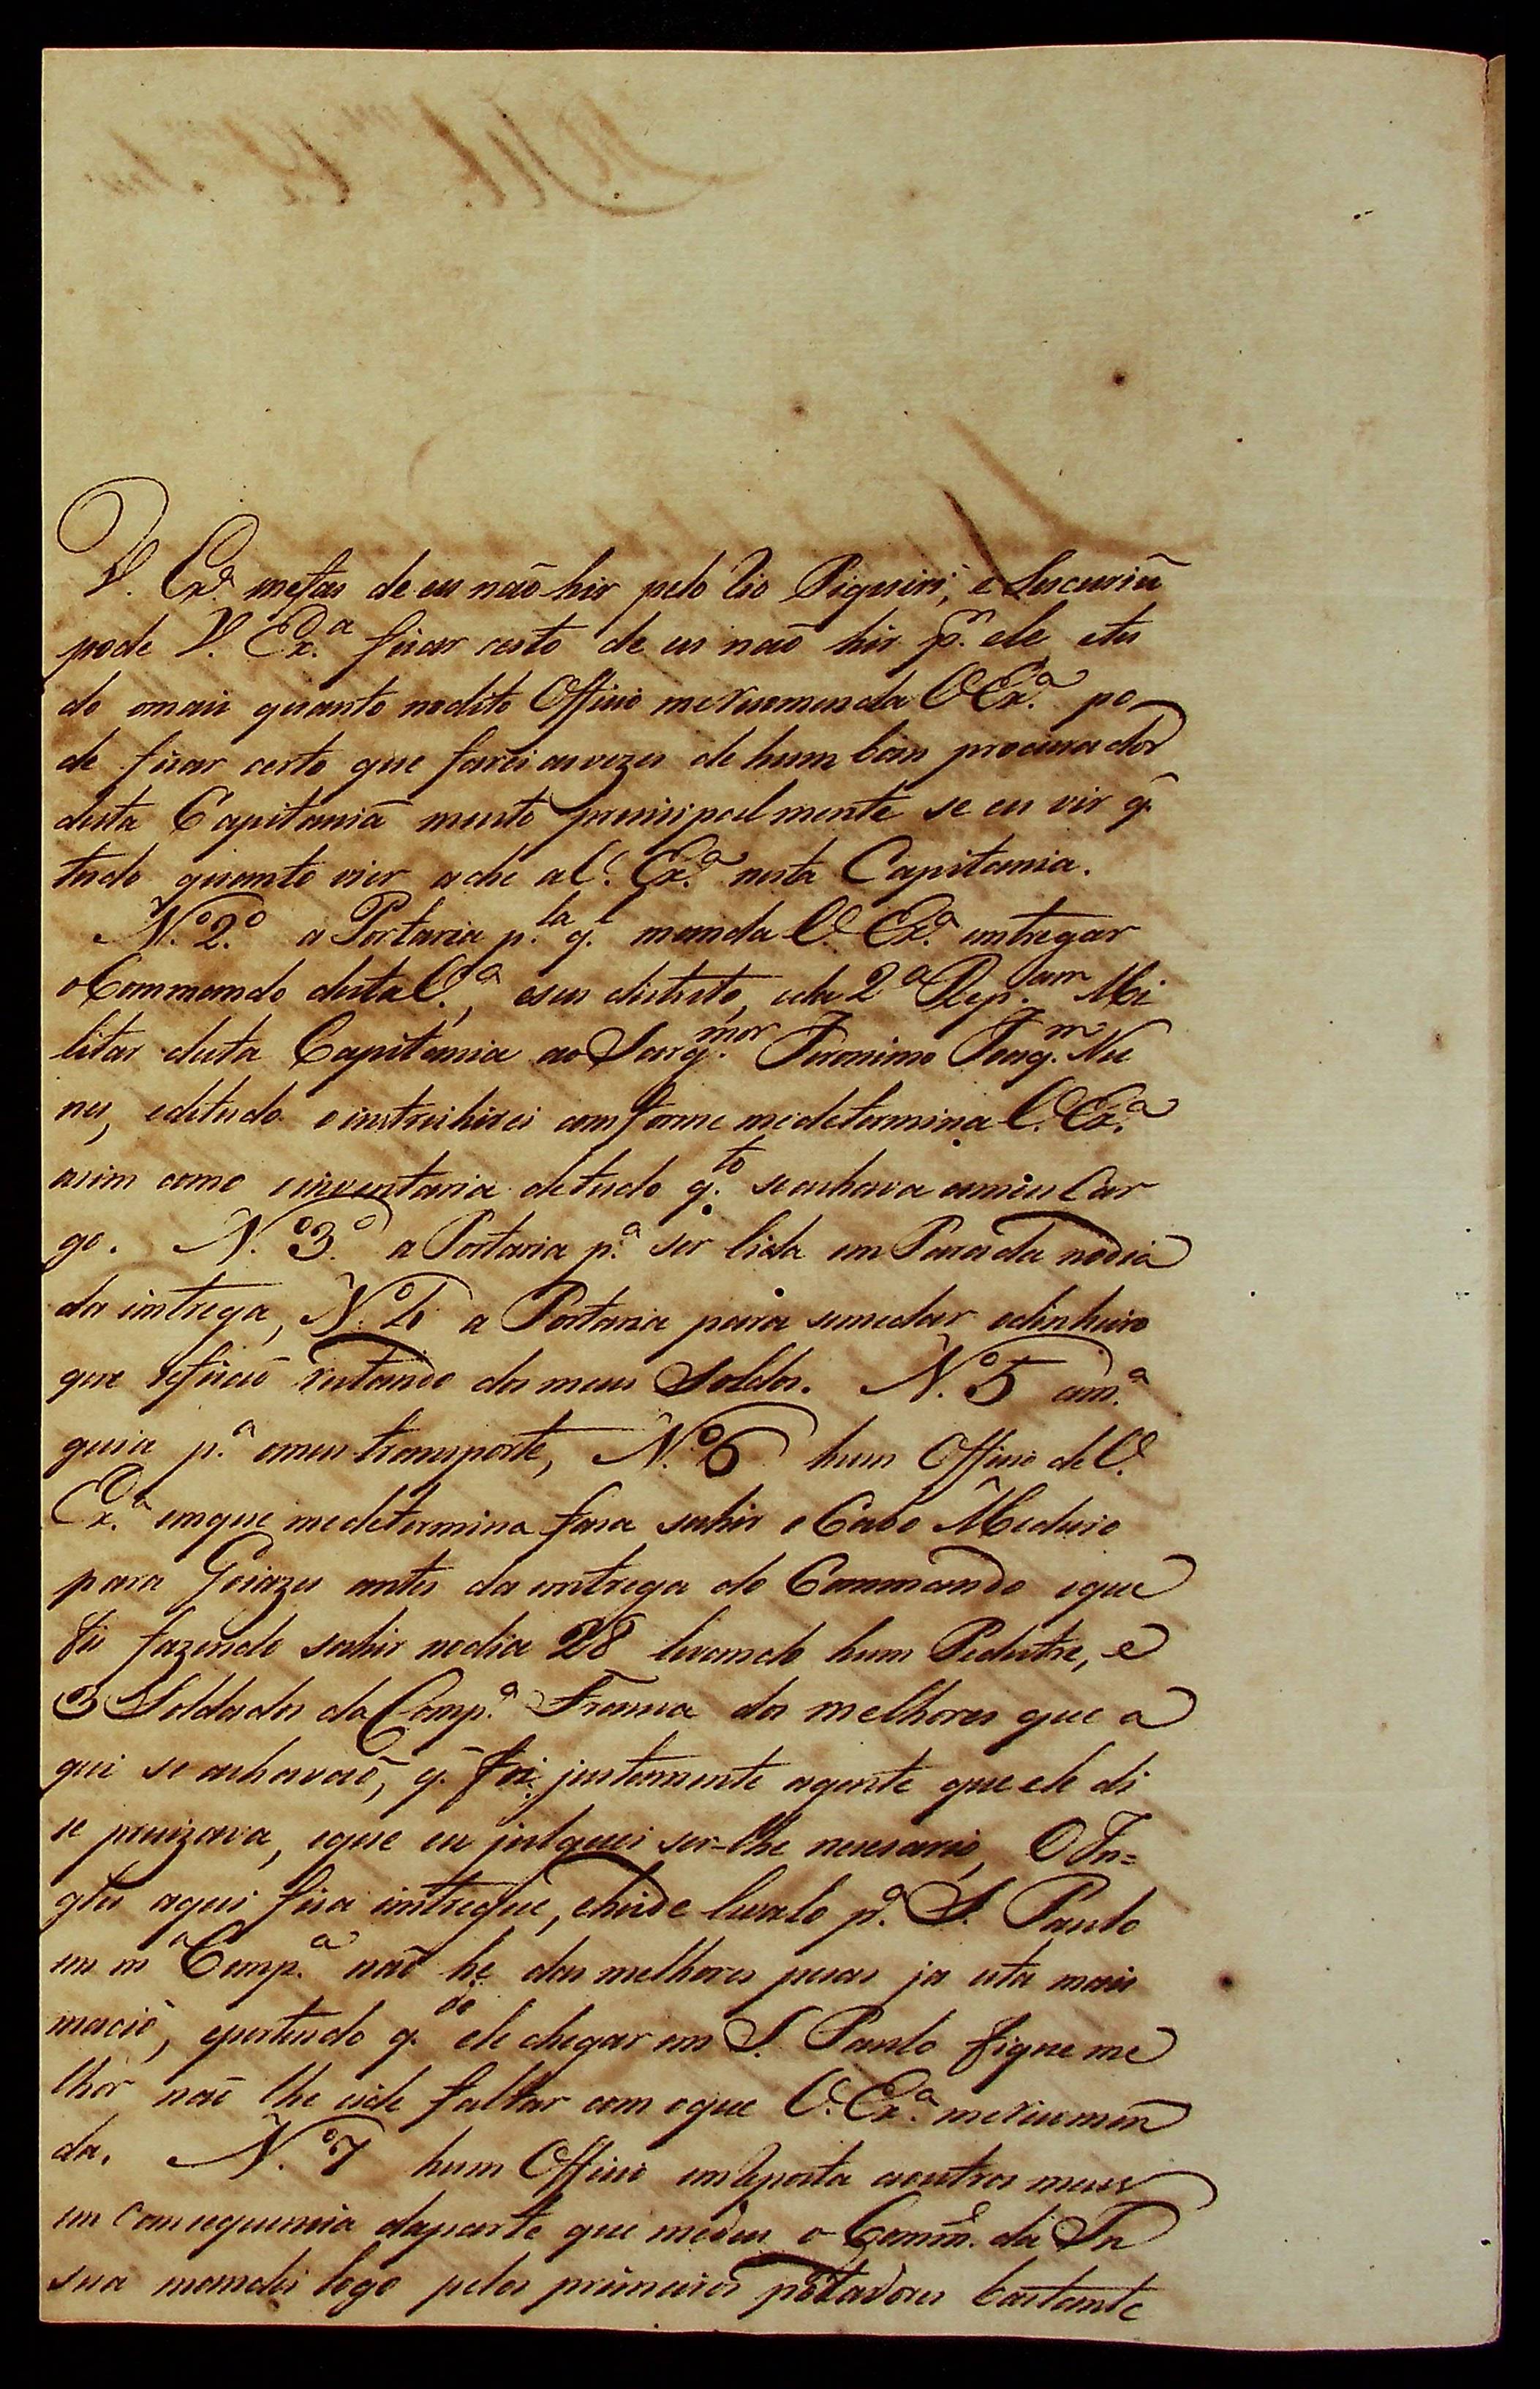 V. Ex.ª mefas de eu naõ hir pelo Rio Piquiri, e Sucuriũ
pode V. Ex.ª ficar certo de eu naõ hir p.r ele etu
do omais quanto nodito Officio merecomenda V. Ex.ª po
de ficar certo que farei asvezes de hum bom procurador
desta Capitania muito principalmente se eu vir q̃
tudo quanto vier ache a V. Ex.ª nesta Capitania.
N.º 2.º a Portaria p.la q.l manda V. Ex.ª entregar
oCommando desta V.ª, eseu distrito, eda 2ª Rep.am Mi
litar desta Capitania ao Sarg.mor Jeronimo Joaq.m Nu
nes, edetudo o instruhirei comforme medetermina V. Ex.ª
asim como oinventaria detudo q.to seachava ameu Car
go. N.º 3.º a Portaria p.ª ser lida em Parada nodia
da intrega, N.º 4 a Portaria para semedar odinheiro
que seficaõ restando dos meus Soldos. N.º 5 am.ª
guia p.ª omeu transporte, N.º 6 hum Officio de V.
Ex.ª emque medetermina fasa sahir o Cabo Meduro
para Goiazes antes da entrega do Commando oque
fis fazendo sahir nodia 28 levando hum Pedestre, e
3 Soldados da Comp.ª Franca dos melhores que a
qui se achavaõ, q̃ foi justamente agente que ele di
se precizava, eque eu julguei ser-lhe necesario, O In=
gles aqui fica intregue, eheide levalo p.ª S. Paulo
em m.ª Comp.ª naõ he das melhores pesas ja esta mais
macio, epertendo q.do ele chegar em S. Paulo fique me
lhor naõ lhe eide faltar com oque V. Ex.ª merecomen
da. N.º 7 hum Officio emReposta aoutros meus
em comsequencia daparte que medeu o Comm.e da In
sua mandei logo pelos primeiros portadores bastante